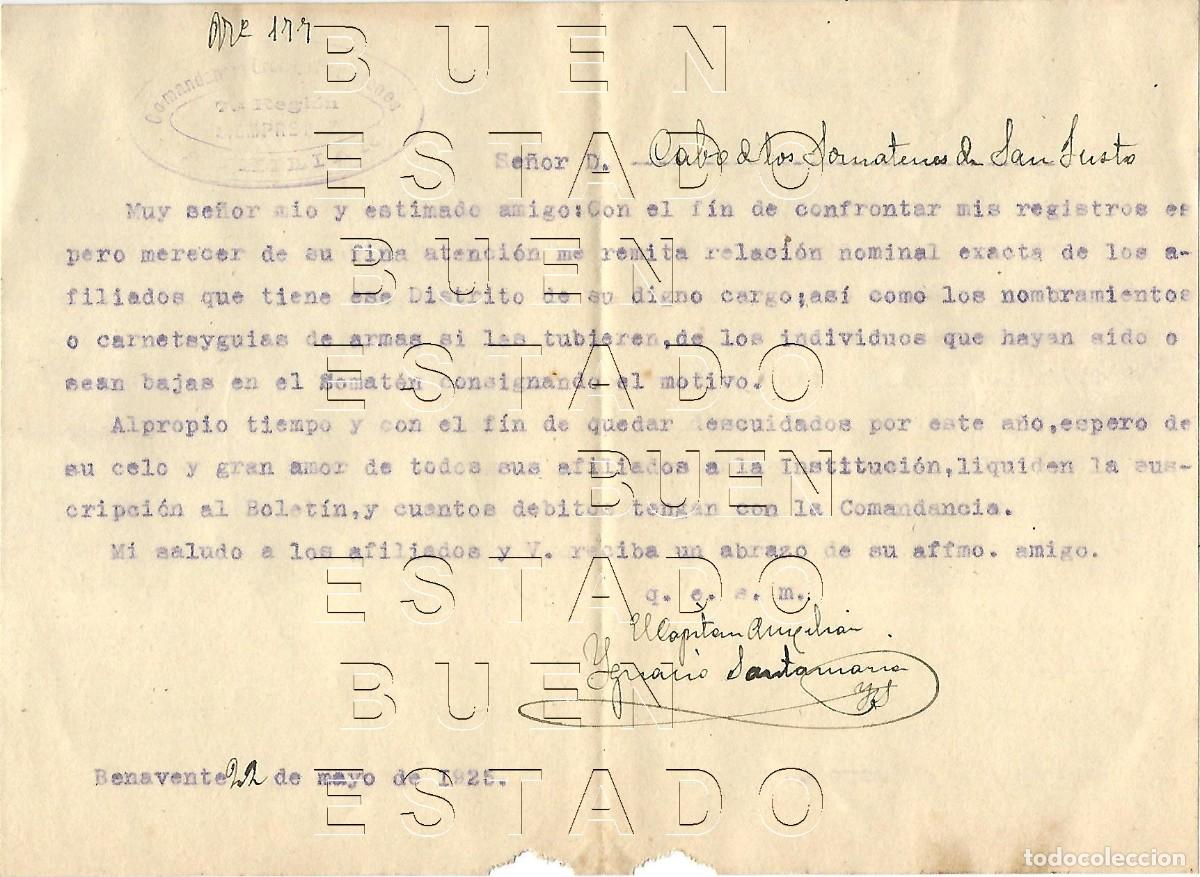 Nº 177
Comandancia
7ª Región
Señor D. Cabo de los Somatenes de San Justo
Muy señor mio y estimado amigo:Con el fín de confrontar mis registros es
pero merecer de su fina atención me remita relación nominal exacta de los a-
filiados que tiene ese Distrito de su digno cargo;así como los nombramientos
o carnetsyguias de armas si las tubieren,de los individuos que hayan sido o
sean bajas en el Somatén consignando el motivo.
Alpropio tiempo y con el fín de quedar descuidados por este año,espero de
su celo y gran amor de todos sus afiliados a la Institución,liquiden la sus-
cripción al Boletín,y cuantos debitos tengan con la Comandancia.
Mi saludo a los afiliados y V. reciba un abrazo de su affmo. amigo.
q. e. s. m.
El Capitan Auxiliar.
Ygnacio Santamaria
Benavente 22 de mayo de 1925.
BUEN
ESTADO
BUEN
ESTADO
BUEN
ESTADO
BUEN
ESTADO
todocoleccion